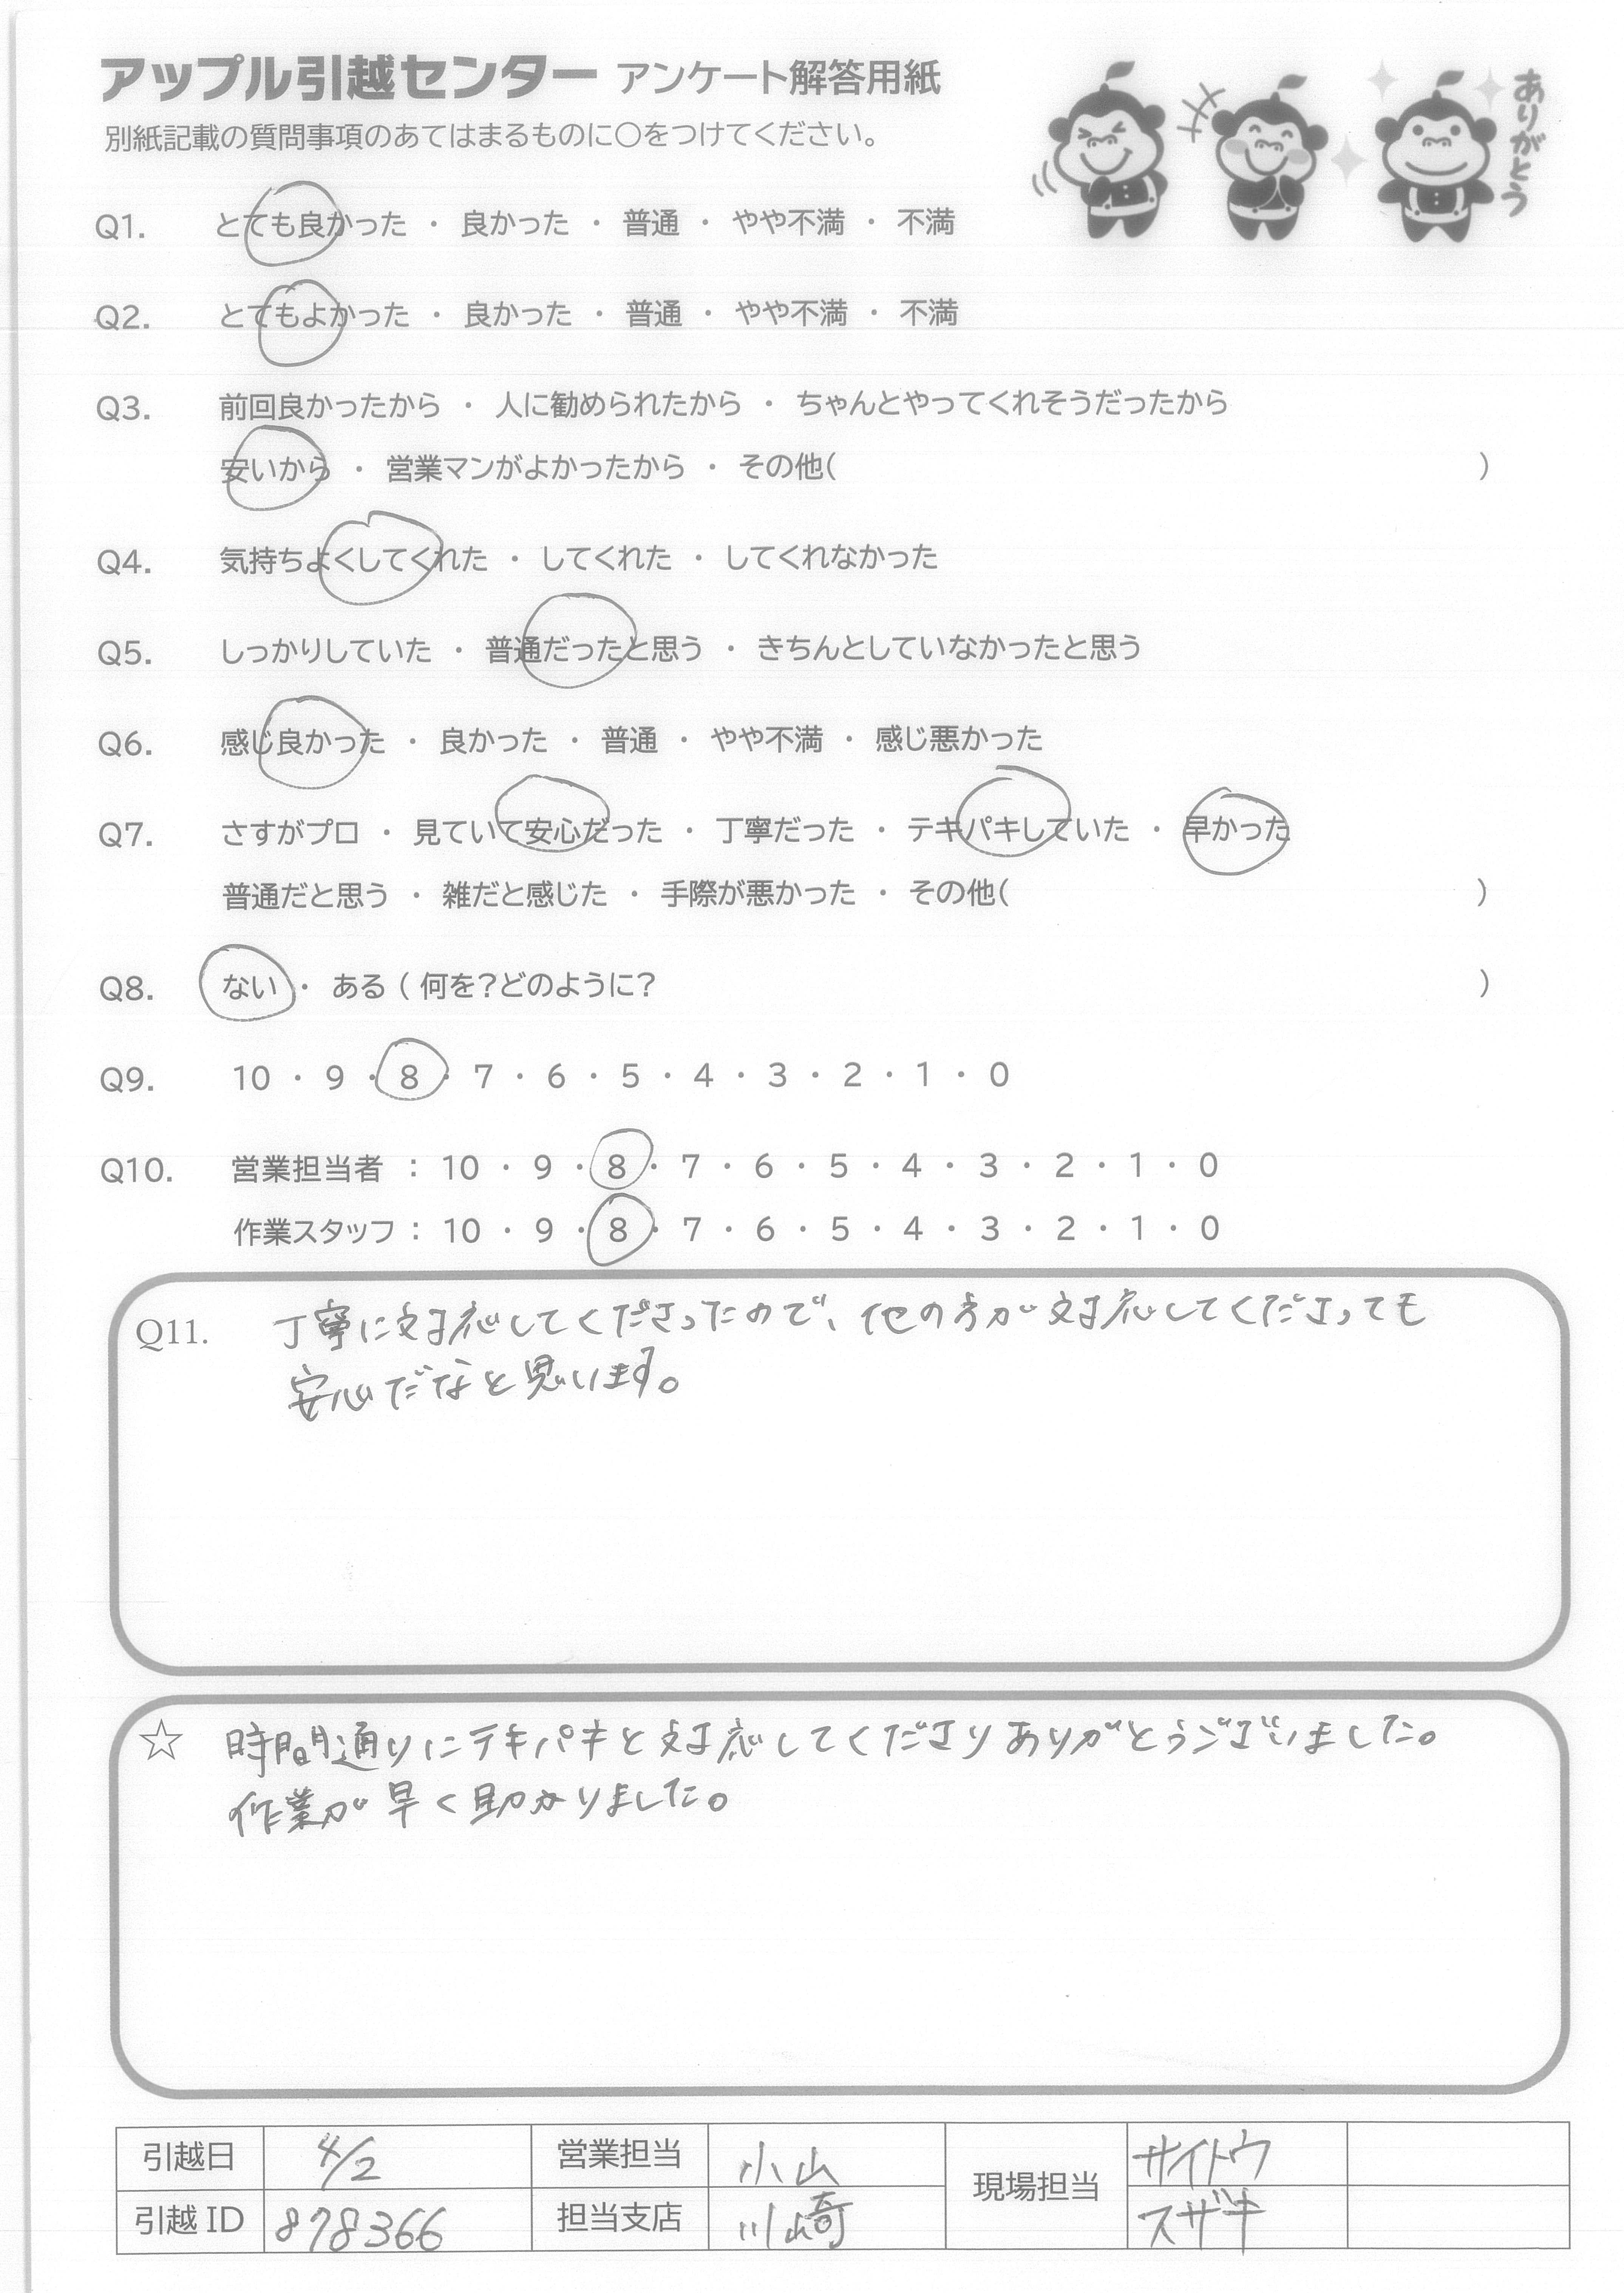 アップル引越センター アンケート解答用紙
別紙記載の質問事項のあてはまるものに○をつけてください。
ありがとう
Q1. とても良かった ・ 良かった ・ 普通 ・ やや不満 ・ 不満
Q2. とてもよかった ・ 良かった ・ 普通 ・ やや不満 ・ 不満
Q3. 前回良かったから ・ 人に勧められたから ・ ちゃんとやってくれそうだったから
安いから ・ 営業マンがよかったから ・ その他( )
Q4. 気持ちよくしてくれた ・ してくれた ・ してくれなかった
Q5. しっかりしていた ・ 普通だったと思う ・ きちんとしていなかったと思う
Q6. 感じ良かった ・ 良かった ・ 普通 ・ やや不満 ・ 感じ悪かった
Q7. さすがプロ ・ 見ていて安心だった ・ 丁寧だった ・ テキパキしていた ・ 早かった
普通だと思う ・ 雑だと感じた ・ 手際が悪かった ・ その他( )
Q8. ない ・ ある ( 何を?どのように? )
Q9. 10 ・ 9 ・ 8 ・ 7 ・ 6 ・ 5 ・ 4 ・ 3 ・ 2 ・ 1 ・ 0
Q10. 営業担当者 : 10 ・ 9 ・ 8 ・ 7 ・ 6 ・ 5 ・ 4 ・ 3 ・ 2 ・ 1 ・ 0
作業スタッフ : 10 ・ 9 ・ 8 ・ 7 ・ 6 ・ 5 ・ 4 ・ 3 ・ 2 ・ 1 ・ 0
Q11. 丁寧に対応してくださったので、他の方が対応してくださっても
安心だなと思います。
☆ 時間通りにテキパキと対応してくださりありがとうございました。
作業が早く助かりました。
引越日 4/2 営業担当 小山 現場担当 サイトウ
引越ID 878366 担当支店 川崎 スザキ